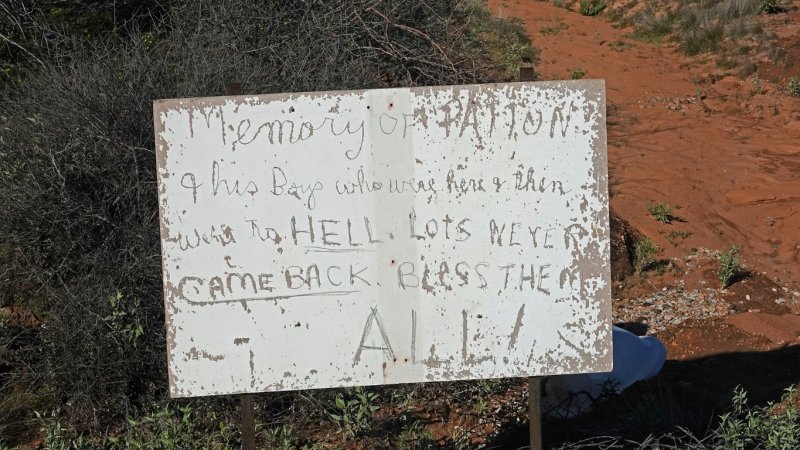 Memory of PATTON
& his Boys who were here & then
went to HELL. LOTS NEVER
CAME BACK. BLESS THEM
ALL!